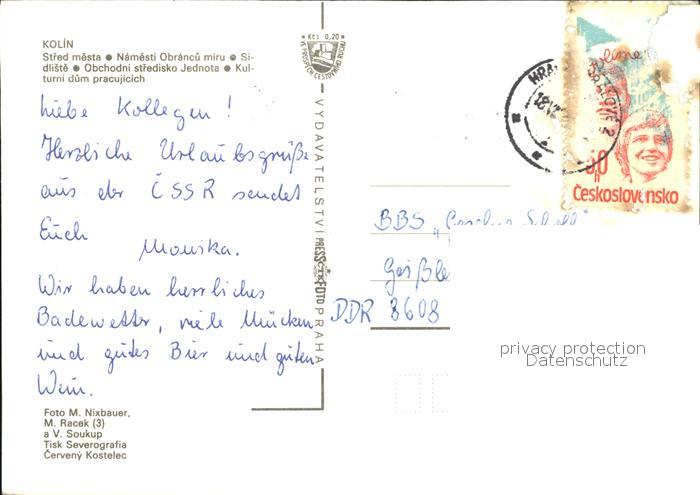 KOLÍN
Střed města ● Náměstí Obránců míru ● Sí-
dliště ● Obchodní středisko Jednota ● Kul-
turní dům pracujících
Liebe Kollegen!
Herzliche Urlaubsgrüße
aus der ČSSR sendet
Euch
Monika.
Wir haben herrliches
Badewetter, viele Mücken
und gutes Bier und guten
Wein.
Foto M. Nixbauer,
M. Racek (3)
a V. Soukup
Tisk Severografia
Červený Kostelec
Kčs 0,20
VYDAVATELSTVÍ PRESSFOTO PRAHA
ČTK
HRA
18.VI
2
Československo
BBS „
Geißle
DDR 8608
privacy protection
Datenschutz